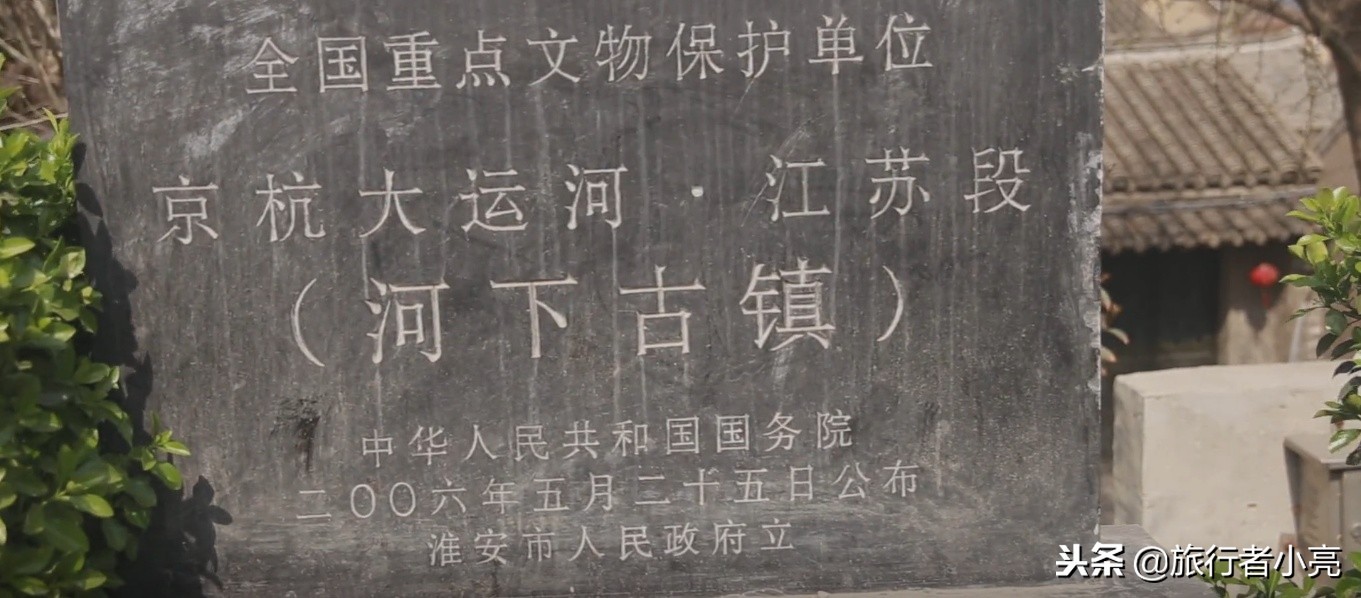 全国重点文物保护单位
京杭大运河·江苏段
（河下古镇）
中华人民共和国国务院
二〇〇六年五月二十五日公布
淮安市人民政府立
头条@旅行者小亮